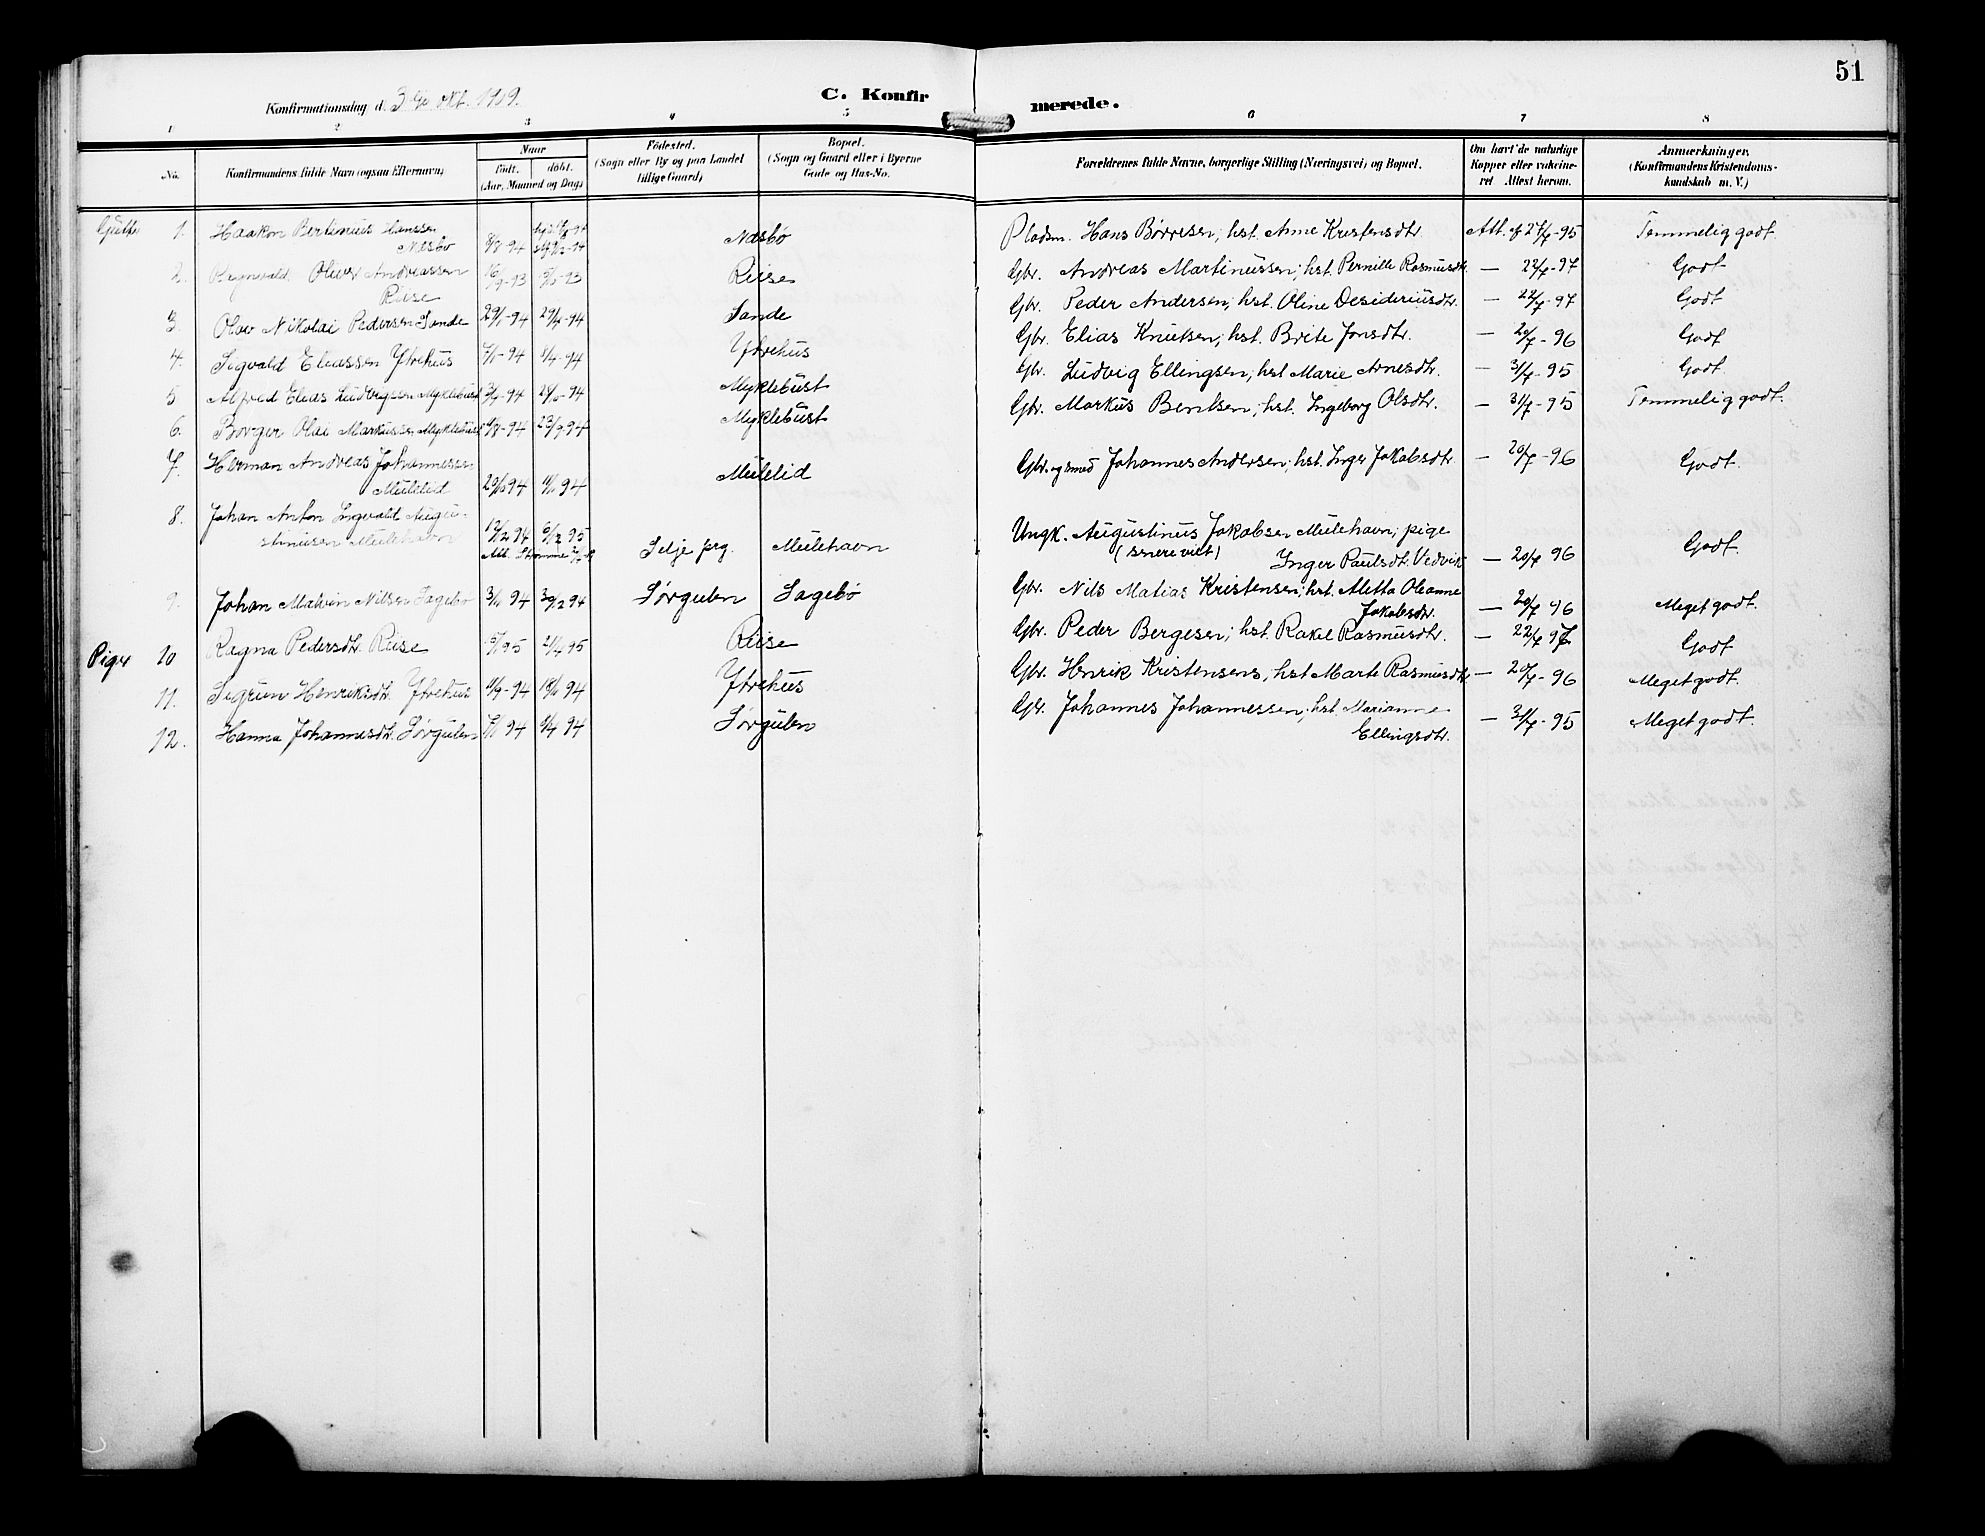 51
Konfirmationsdag d. 3die okt. 1909.
C. Konfirmerede.
1 2 3 4 5 6 7 8
No.
Konfirmandens fulde Navn (ogsaa Efternavn)
Naar
født. döbt.
(Aar, Maaned og Dag)
Födested.
(Sogn eller By og paa Landet
tillige Gaard)
Bopæl.
(Sogn og Gaard eller i Byerne
Gade og Hus-No.
Forældrenes fulde Navne, borgerlige Stilling (Næringsvei) og Bopæl.
Om havt de naturlige
Kopper eller vakcine-
ret Attest herom.
Anmærkninger.
(Konfirmandens Kristendoms-
kundskab m. V.)
Gutter 1. Haakon Bertinius Hanssen
Næsbø
8/8-94 Næsbø Pladsm. Hans Börresen; hst. Anne Kristensdtr. Att. af 27/7-95 Temmelig godt.
2. Ragnvald Oliver Andreassen
Riise
16/9-93 Riise Gbr. Andreas Martinussen; hst. Pernille Rasmusdtr. — 22/7-97 Godt
3. Olav Nikolai Pedersen Sande 29/1-94 29/4-94 Sande Gbr. Peder Andersen; hst. Oline Desideriusdtr. — 22/7-97 Godt
4. Sigvald Eliassen Ytrehus 7/1-94 1/4-94 Ytrehus Gbr. Elias Knutsen; hst. Brite Jonsdtr. — 20/7-96 Godt
5 Alfred Elias Ludvigssen Myklebust 24/6-94 Myklebust Gbr. Ludvig Ellingsen; hst. Marie Arnesdtr. — 31/7-95 Godt.
6. Borger Olai Markussen Myklebust 23/9 94 Myklebust Gbr. Markus Bentsen; hst. Ingeborg Olsdtr. — 31/7-95 Temmelig godt.
7. Herman Andreas Johannessen
Mulelid
94 94 Mulelid Gbr. og smed Johannes Andersen; hst. Inger Jakobsdtr — 20/7-96 Godt.
8. Johan Anton Ingvald Augu-
stinusen Mulehavn
12/12 94 95
Selje prg. Mulehavn Ungk. Augustinus Jakobsen Mulehavn; pige
(senere viet) Inger Paulsdtr. Vedvik — 20/7 96 Godt.
9. Johan Malvin Nilsen Sagebø 94 94 Sørgulen Sagebø Gbr. Nils Matias Kristensen; hst. Aletta Oleanne
Jakobsdtr. — 20/7 96 Meget godt.
Piger 10 Ragna Pedersdtr. Riise 95 21/4 95 Riise Gbr. Peder Bergesen; hst. Rakel Rasmusdtr. — 22/7 97 Godt
11. Sigrun Henriksdtr. Ytrehus 94 94 Ytrehus Gbr. Henrik Kristensens, hst Marte Rasmusdtr — 20/7-96 Meget godt.
12. Hanna Johannesdtr. Sørgulen 94 94 Sørgulen Gbr. Johannes Johannessen; hst. Marianne
Ellingsdtr. — 31/7-95 Meget godt.